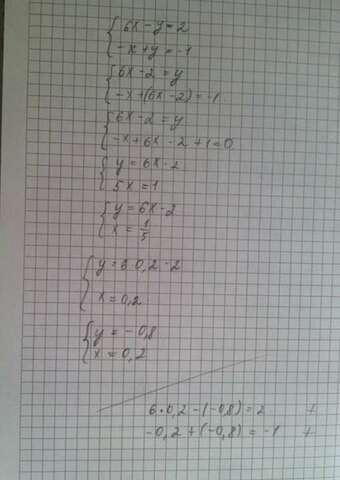 { 6x - y = 2
-x + y = -1
{ 6x - 2 = y
-x + (6x - 2) = -1
{ 6x - 2 = y
-x + 6x - 2 + 1 = 0
{ y = 6x - 2
5x = 1
{ y = 6x - 2
x = 1/5
{ y = 6·0,2 - 2
x = 0,2
{ y = -0,8
x = 0,2
6·0,2 - (-0,8) = 2 +
-0,2 + (-0,8) = -1 +